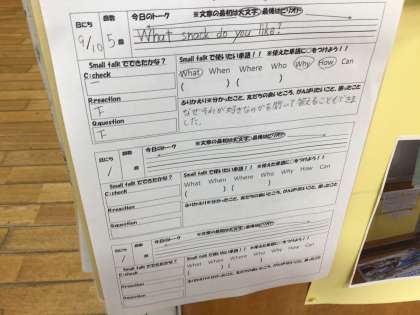 日にち 回数 今日のトーク ※文章の最初は大文字、最後はピリオド
9/10 5回 What snack do you like?
Small talkでできたかな? Small talkで使いたい単語!! ※使えた単語に○をつけよう!!
C:check What When Where Who Why How Can
( ) ( )
R:reaction ふりかえり※分かったこと、友だちの良いところ、がんばりたいこと、困ったこと
下 なぜそれが好きなのかを聞いて答えることもできま
Q:question した。
下
日にち 回数 今日のトーク ※文章の最初は大文字、最後はピリオド
/ 回
Small talkでできたかな? Small talkで使いたい単語!! ※使えた単語に○をつけよう!!
C:check What When Where Who Why How Can
( ) ( )
R:reaction ふりかえり※分かったこと、友だちの良いところ、がんばりたいこと、困ったこと
Q:question
日にち 回数 今日のトーク ※文章の最初は大文字、最後はピリオド
/ 回
Small talkでできたかな? Small talkで使いたい単語!! ※使えた単語に○をつけよう!!
C:check What When Where Who Why How Can
( ) ( )
R:reaction ふりかえり※分かったこと、友だちの良いところ、がんばりたいこと、困ったこと
Q:question